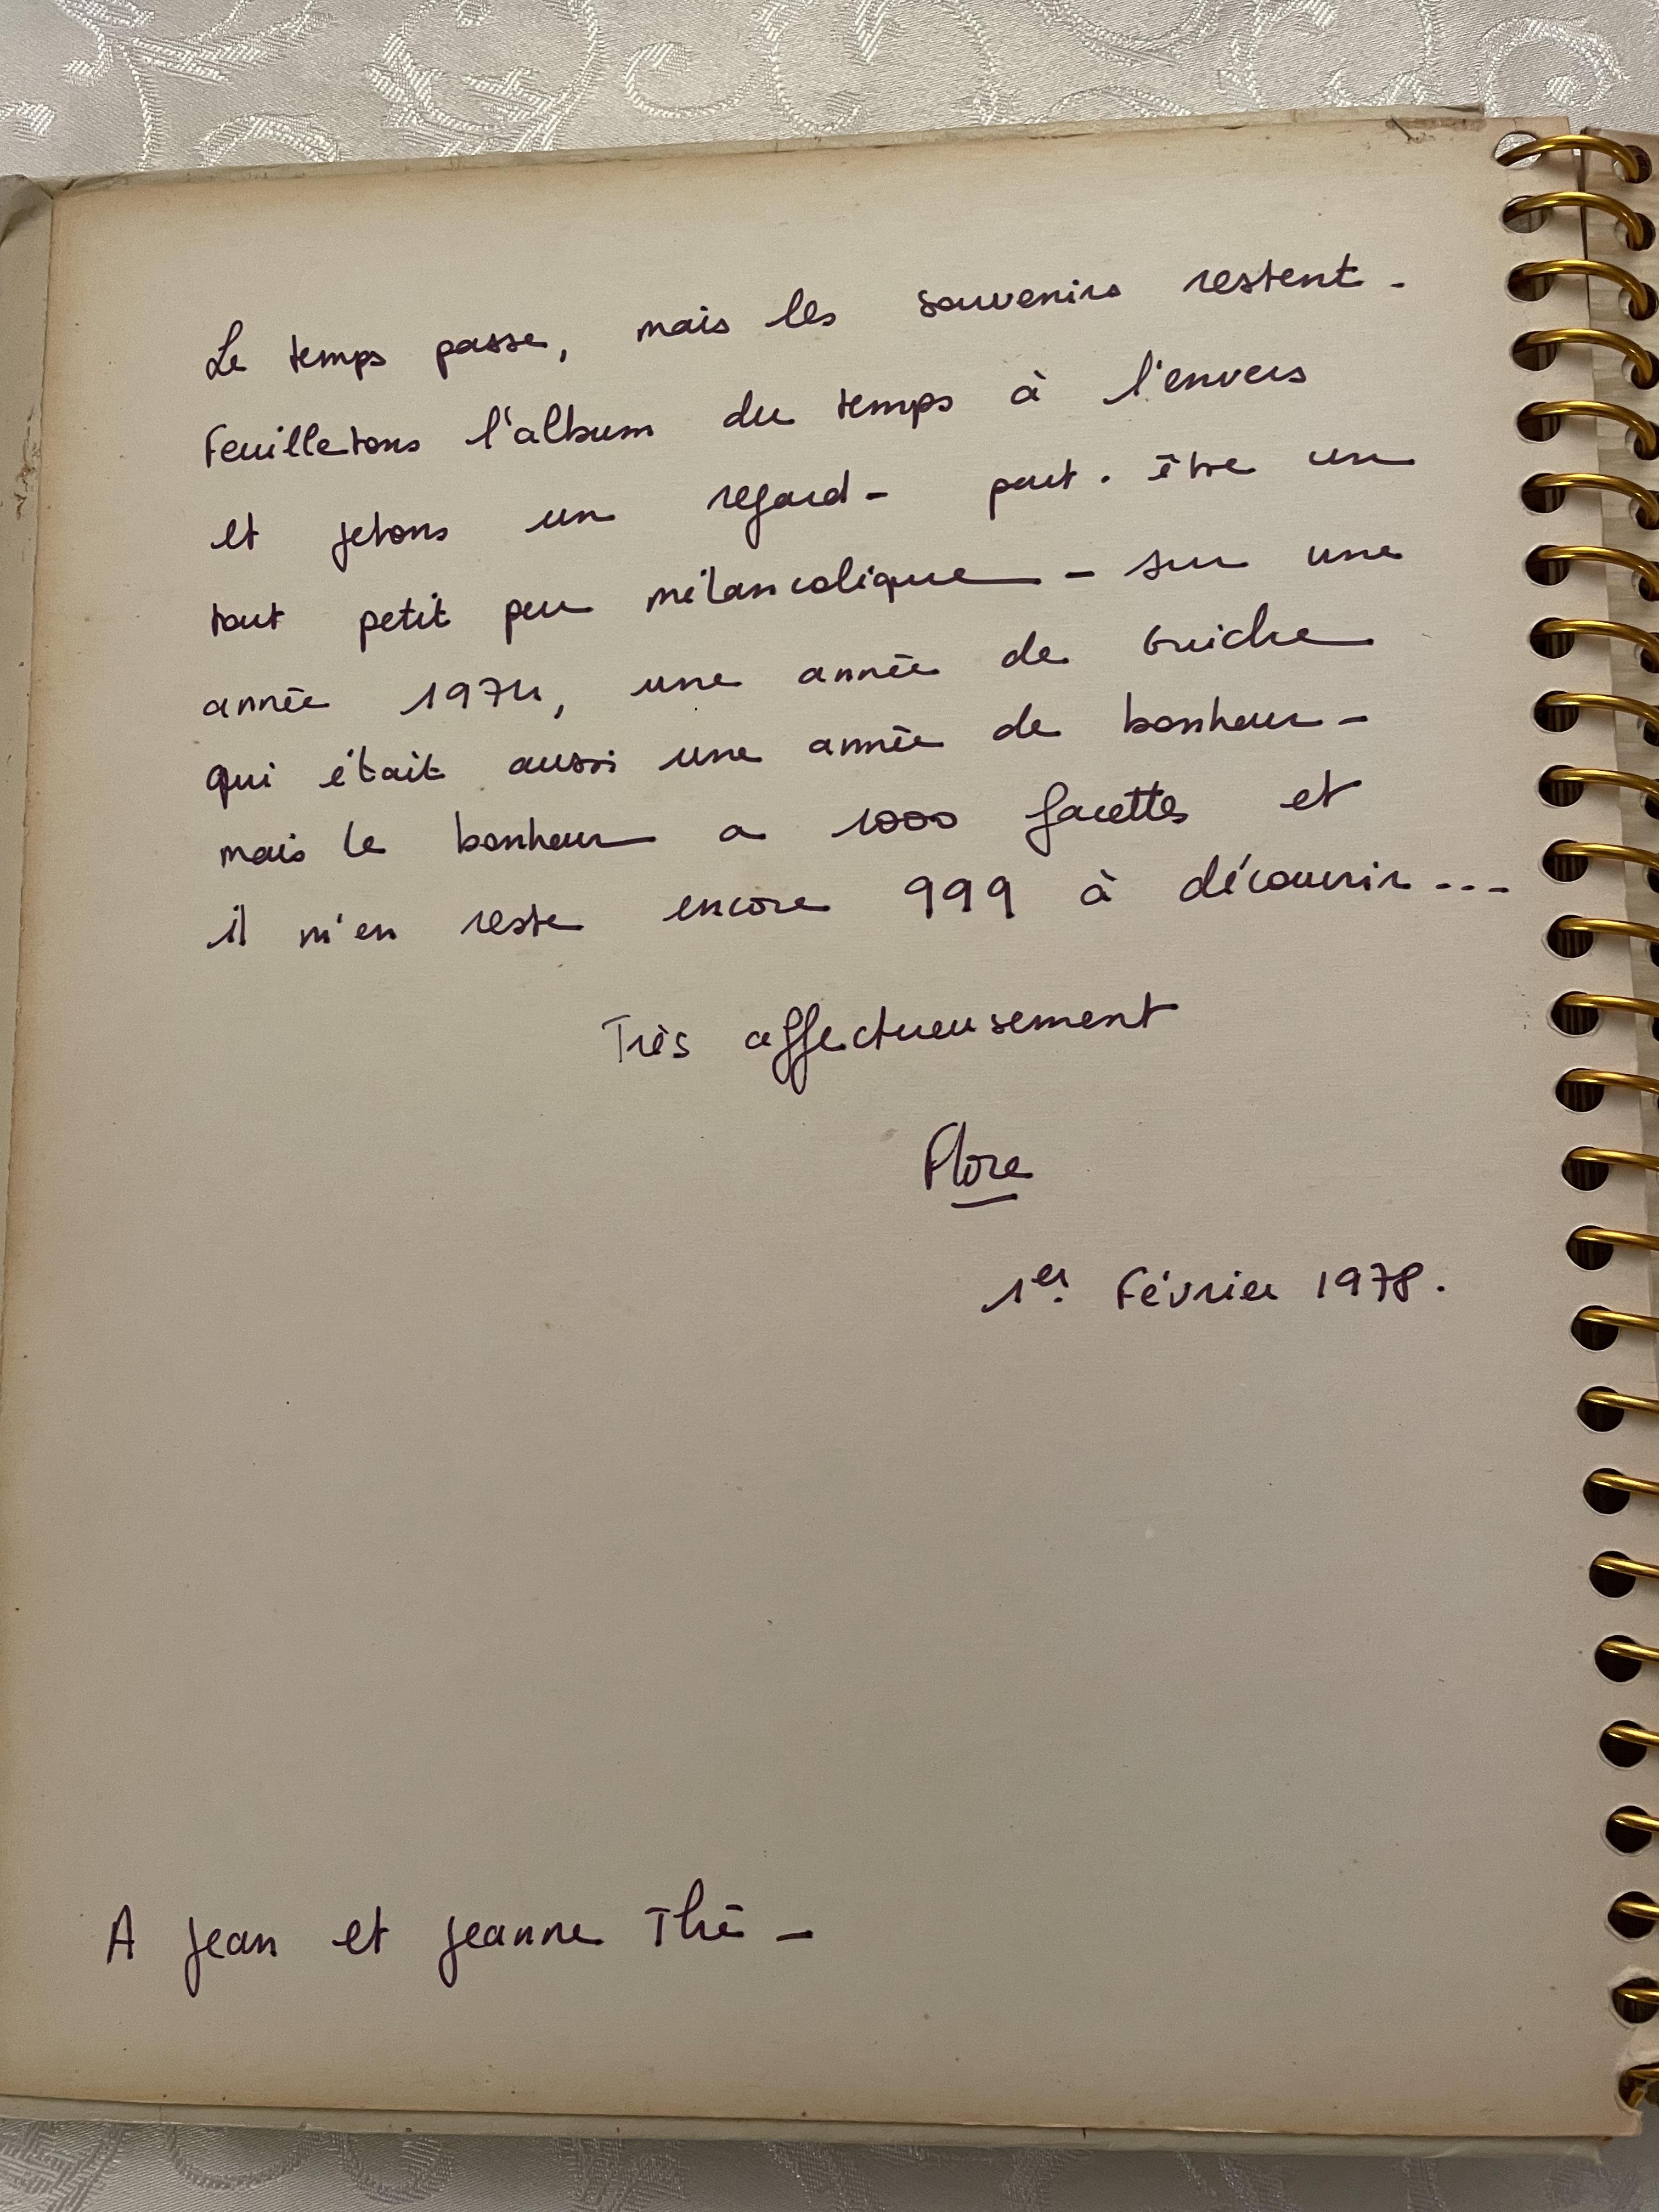 Le temps passe, mais les souvenirs restent -
Feuilletons l'album du temps à l'envers
et jetons un regard - peut-être un
tout petit peu mélancolique - sur une
année 1974, une année de Guiche
qui était aussi une année de bonheur -
mais le bonheur a 1000 facettes et
il m'en reste encore 999 à découvrir ---
Très affectueusement
Flore
1er Février 1978.
A Jean et Jeanne Thé -